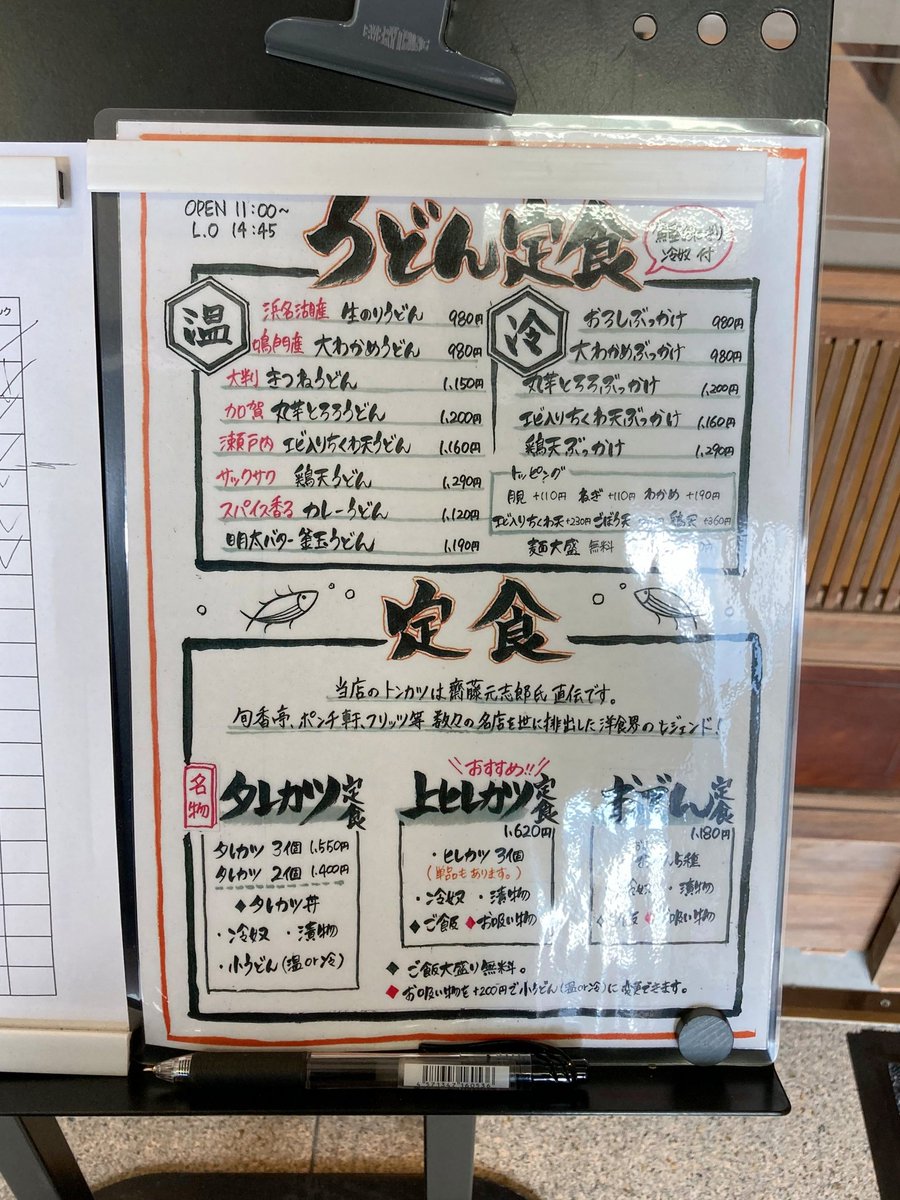 OPEN 11:00~
L.O 14:45
うどん定食
冷奴 付
温
浜名湖産 生のりうどん 980円
鳴門産 大わかめうどん 980円
大判 きつねうどん 1,150円
加賀 丸芋とろろうどん 1,200円
瀬戸内 エビ入りちくわ天うどん 1,160円
サックサク 鶏天うどん 1,290円
スパイス香る カレーうどん 1,120円
明太バター 釜玉うどん 1,190円
冷
おろしぶっかけ 980円
大わかめぶっかけ 980円
丸芋とろろぶっかけ 1,200円
エビ入りちくわ天ぶっかけ 1,160円
鶏天ぶっかけ 1,290円
トッピング
月見 +110円 ねぎ +110円 わかめ +190円
エビ入りちくわ天+230円 ごぼう天 鶏天 +360円
麺大盛 無料
定食
当店のトンカツは齋藤元志郎氏 直伝です。
旬香亭、ポンチ軒、フリッツ等 数々の名店を世に排出した洋食界のレジェンド!
名物
タレカツ定食
タレカツ 3個 1,550円
タレカツ 2個 1,400円
◆タレカツ丼
・冷奴 ・漬物
・小うどん(温or冷)
おすすめ!!
上ヒレカツ定食
1,620円
・ヒレカツ 3個
(単品もあります。)
・冷奴 ・漬物
◆ご飯 ◆お吸い物
定食
1,180円
5種
冷奴 ・漬物
飯 ◆お吸い物
◆ご飯大盛り無料。
◆お吸い物を+200円で小うどん(温or冷)に変更できます。